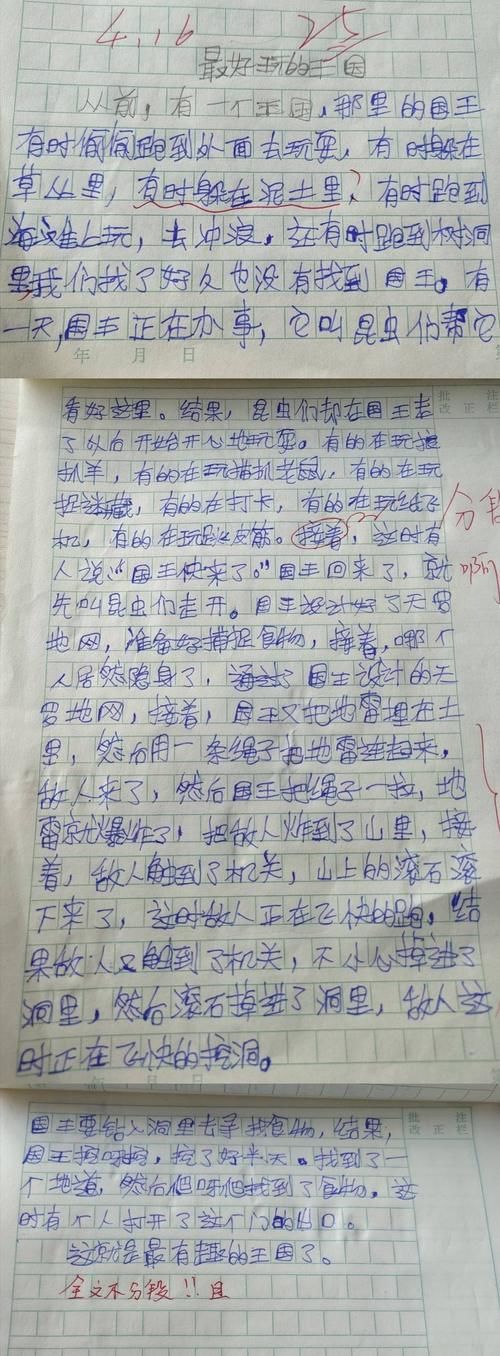 4.16 25
最好玩的王国
从前，有一个王国，那里的国王
有时偷偷跑到外面去玩耍，有时躲在
草丛里，有时躲在泥土里，有时跑到
海滩上玩，去冲浪，还有时跑到树洞
里，我们找了好久也没有找到国王。有
一天，国王正在办事，它叫昆虫们帮它
年 月 日
批 注
改 正 栏
看好这里。结果，昆虫们却在国王走
了以后开始开心地玩耍。有的在玩狼
抓羊，有的在玩猫抓老鼠，有的在玩
捉迷藏，有的在打卡，有的在玩纸飞
机，有的在玩跳皮筋。接着，这时有
分段
人说“国王快来了。”国王回来了，就
啊
先叫昆虫们走开。国王设计好了天罗
地网，准备好捕捉食物，接着，哪个
人居然隐身了，通过了国王设计的天
罗地网，接着，国王又把地雷埋在土
里，然后用一条绳子把地雷连起来，
敌人来了，然后国王把绳子一拉，地
雷就爆炸了，把敌人炸到了山里，接
着，敌人触到了机关，山上的滚石滚
下来了，这时敌人正在飞快的跑，结
果敌人又触到了机关，不小心掉进了
洞里，然后滚石掉进了洞里，敌人这
时正在飞快的挖洞。
年 月 日
批 注
改 正 栏
国王要钻入洞里去寻找食物，结果，
国王挖呀挖，挖了好半天。找到了一
个地道，然后爬呀爬找到了食物。这
时有个人打开了这个门的出口。
这就是最有趣的王国了。
全文不分段!!且